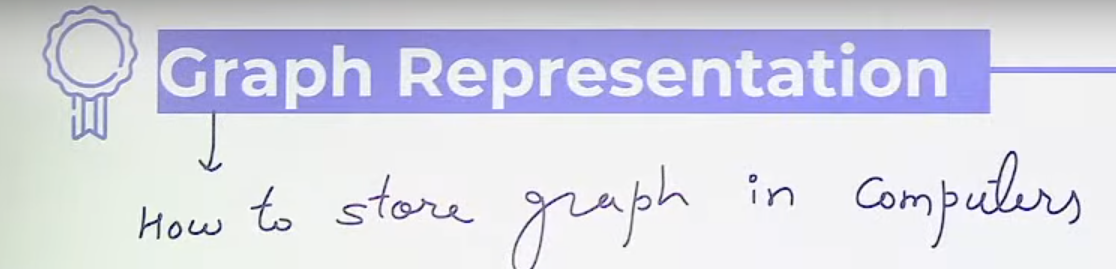 Graph Representation
How to store graph in computers